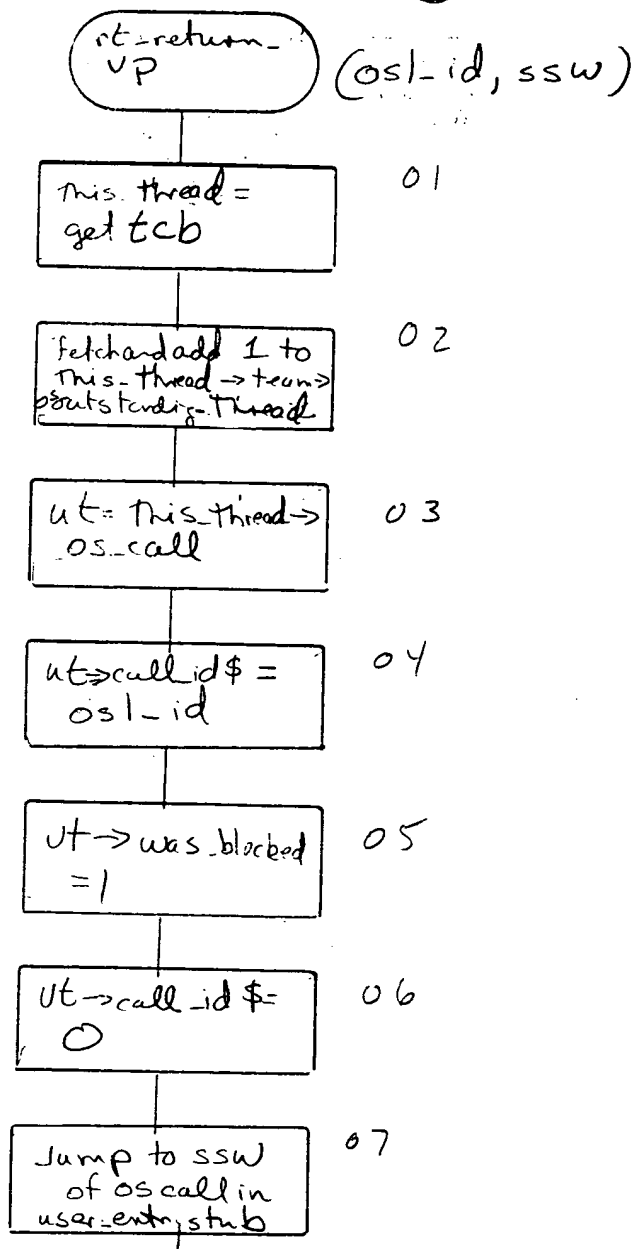 rt_return_
vp
(osl_id, ssw)
This_thread =
get tcb
01
fetchandadd 1 to
This_thread → team →
outstanding_Thread
02
ut = This_thread →
os_call
03
ut → call_id$ =
osl_id
04
ut → was_blocked
= 1
05
ut → call_id $ =
0
06
Jump to ssw
of oscall in
user_entry stub
07